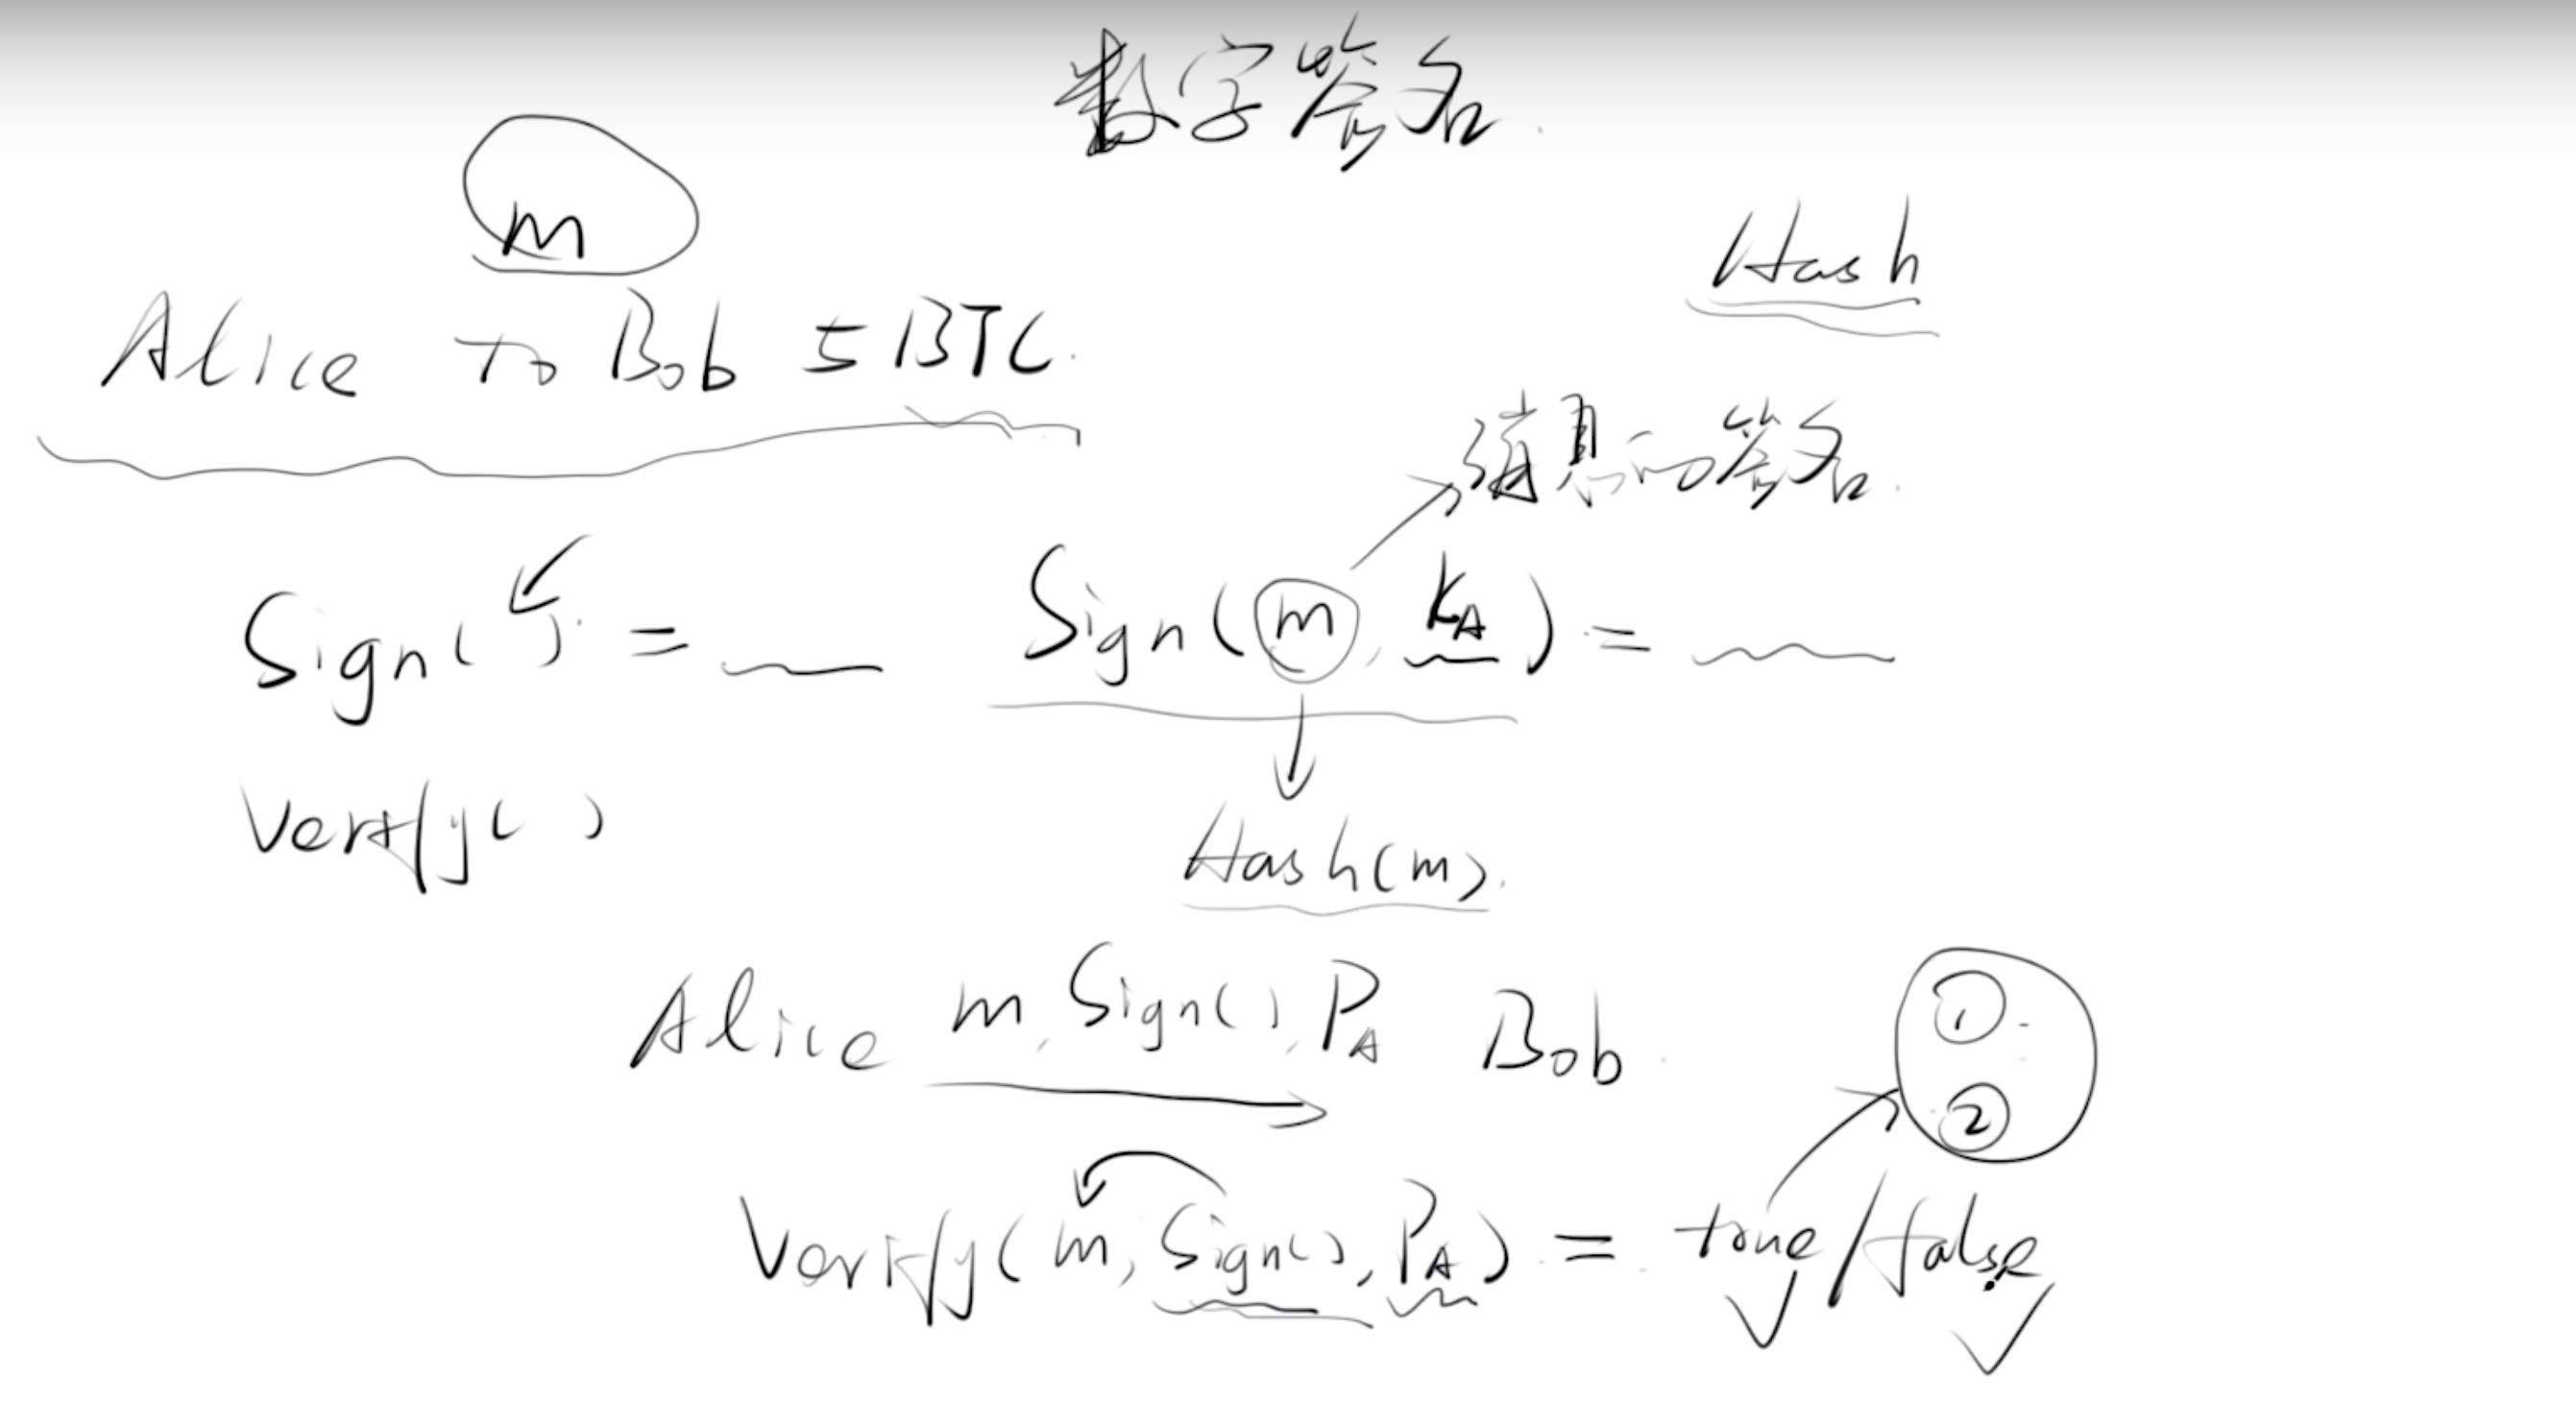 数字签名
m
Hash
Alice To Bob 5 BTC.
消息的签名.
Sign( ). =
Sign(m, KA) =
Verify( )
Hash(m).
Alice m, Sign(), PA Bob.
①
②
Verify(m, Sign(), PA) = true/false